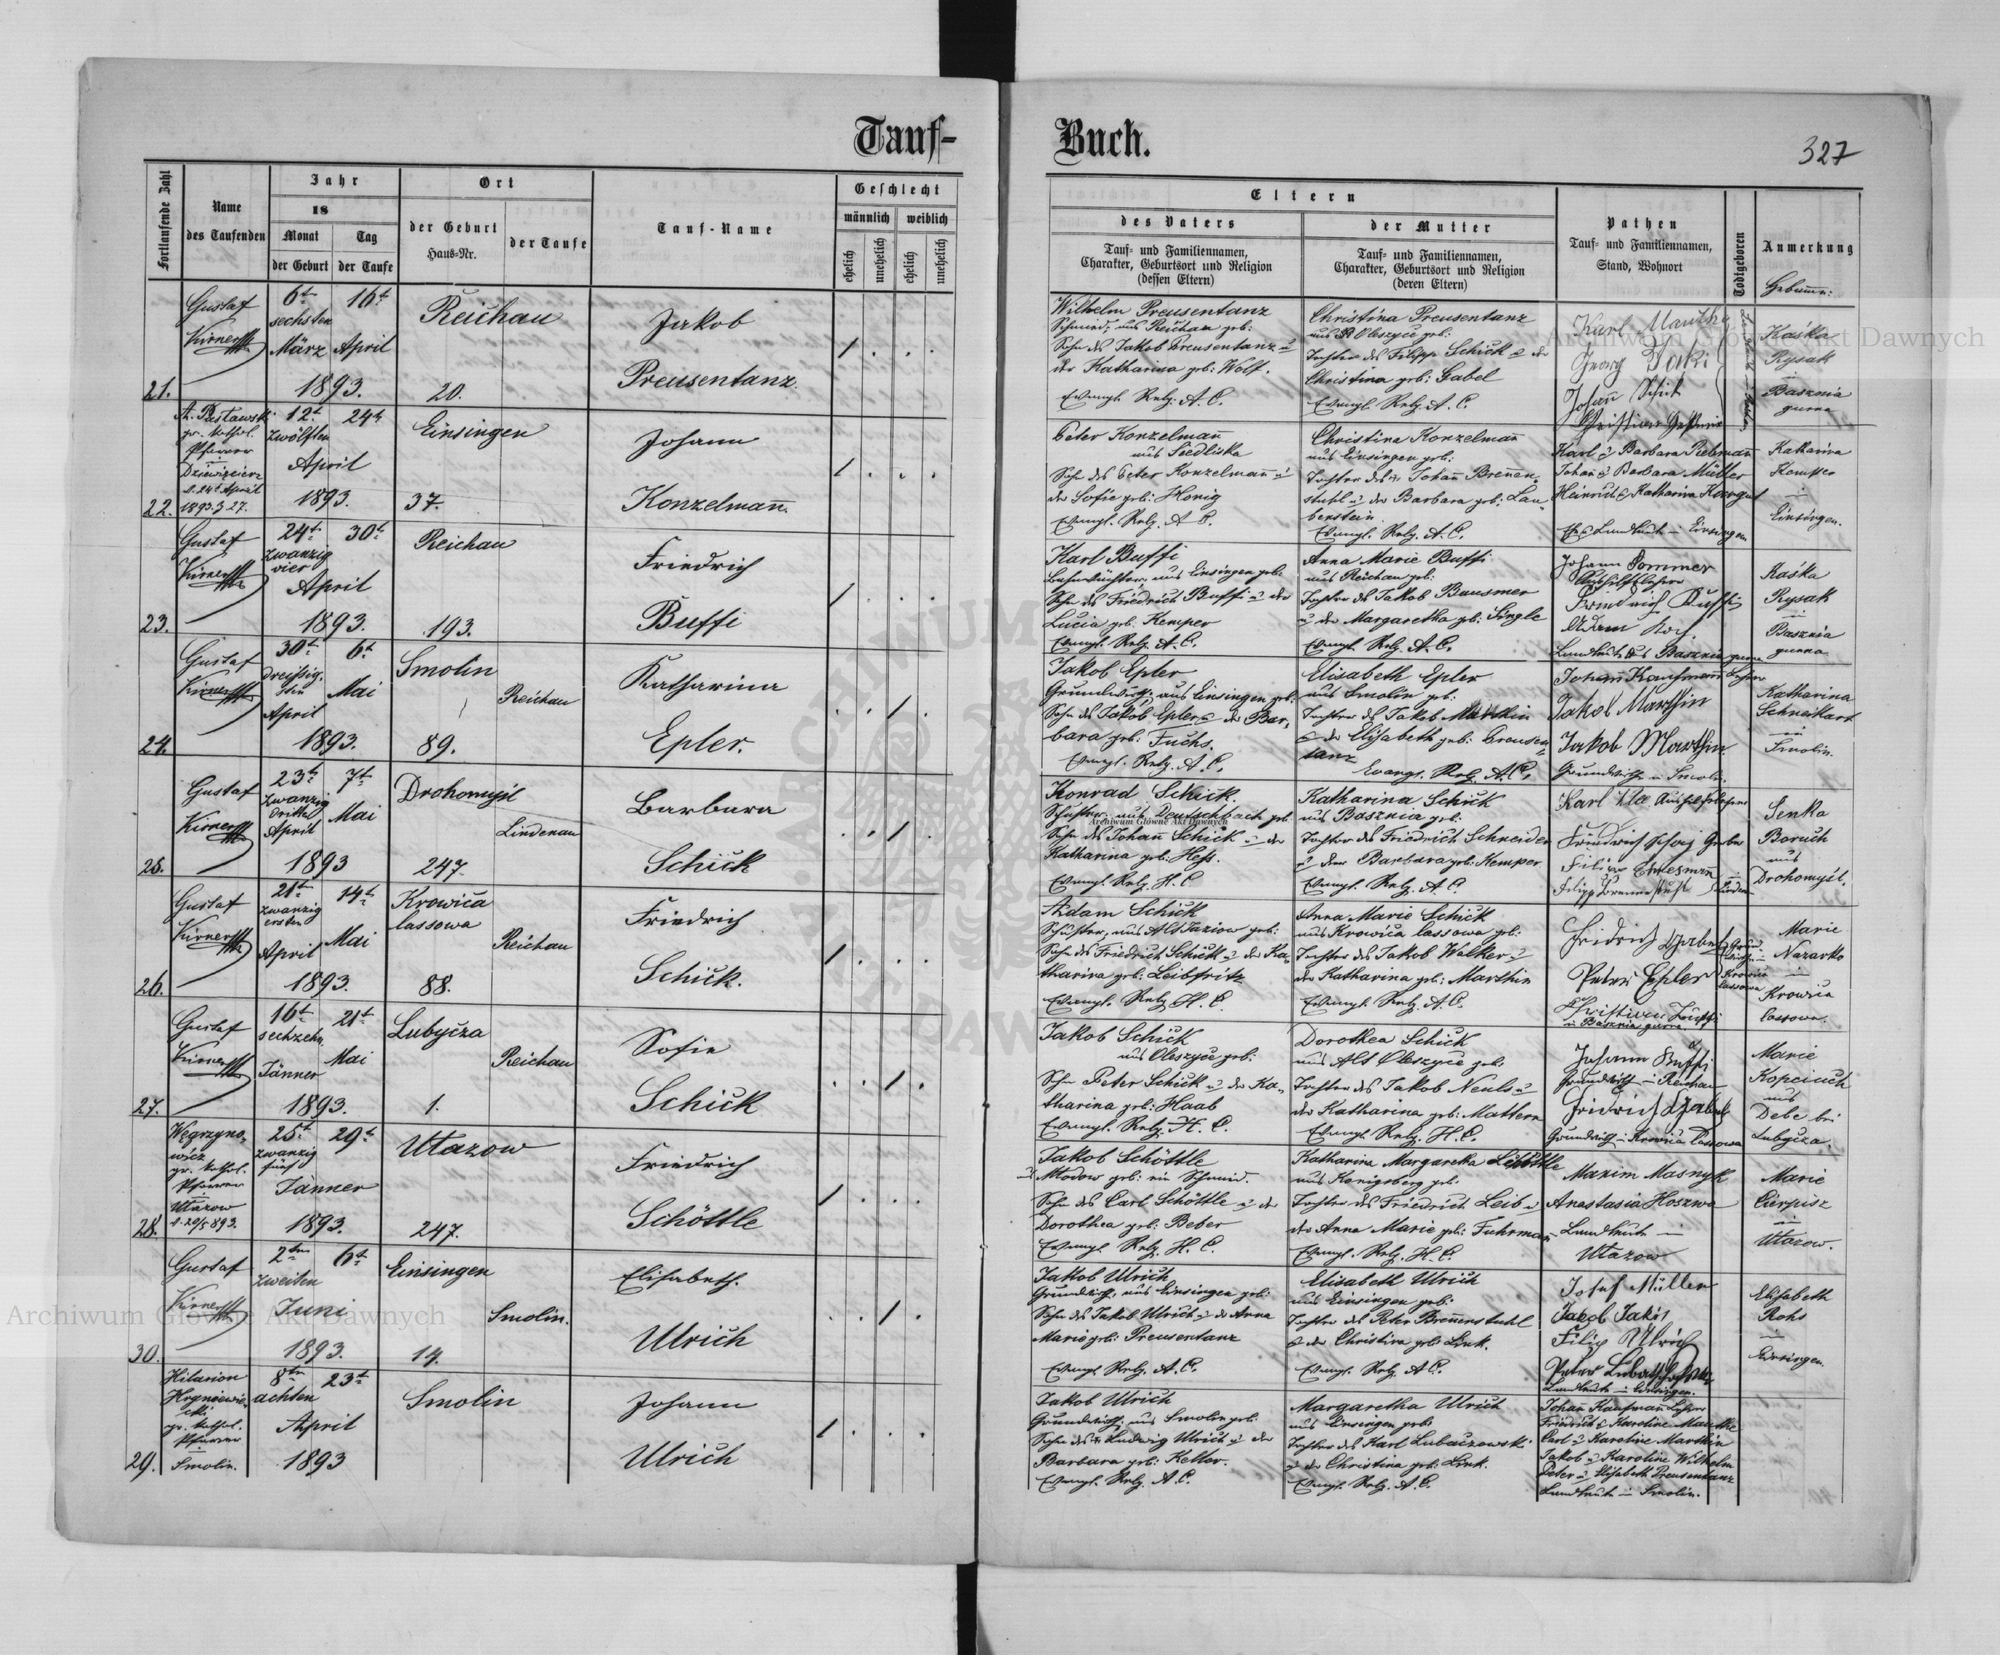 Tauf-
Buch.
327
Fortlaufende Zahl
Name
des Taufenden
Jahr
18
Monat
Tag
der Geburt
der Taufe
Ort
der Geburt
Haus-Nr.
der Taufe
Tauf-Name
Geschlecht
männlich
weiblich
ehelich
unehelich
ehelich
unehelich
Eltern
des Vaters
Tauf- und Familiennamen,
Charakter, Geburtsort und Religion
(dessen Eltern)
der Mutter
Tauf- und Familiennamen,
Charakter, Geburtsort und Religion
(deren Eltern)
Pathen
Tauf- und Familiennamen,
Stand, Wohnort
Todtgeboren
Anmerkung
21.
Gustaf
6t 16t
sechsten
März April
1893.
Reichau
20.
Jakob
Preusentanz.
Wilhelm Preusentanz
Schmied, aus Reichau geb:
Sohn des Jakob Preusentanz u
der Katharina geb: Wolf.
Evangl. Relg. A. C.
Christina Preusentanz
aus Oleszyce geb:
Tochter des Filipp Schick u der
Christina geb: Gabel
Evangl. Relg. A. C.
Karl
Georg
Johan Schik
Kaśka
Rysak
in
Basznia
gurna
22.
gr. kathol.
Pfarrer
1. 24t April
1893. J. 27.
12t 24t
zwölften
April
1893.
Einsingen
37.
Johann
Konzelmann.
Peter Konzelmann
aus Siedliska
Sohn des Peter Konzelmann u
der Sofie geb: Honig
Evangl. Relg. A. C.
Christina Konzelmann
aus Einsingen geb:
Tochter des Johann Brennen-
stuhl u der Barbara geb: Lau-
benstein
Evangl. Relg. A. C.
Karl u Barbara Rebmann
Johan u Barbara Müller
Heinrich u Katharina
Landleute in Einsingen
Katharina
Kemper
in
Einsingen.
23.
Gustaf
24t 30t
zwanzig
vier
April
1893.
Reichau
193.
Friedrich
Buffi
Karl Buffi
aus Einsingen geb:
Sohn des Friedrich Buffi u der
Lucia geb: Kemper
Evangl. Relg. A. C.
Anna Marie Buffi
aus Reichau geb:
Tochter des Jakob Bausmer
u der Margaretha geb: Single
Evangl. Relg. A. C.
Johann Sommer
Friedrich Buffi
Adam
Kaśka
Rysak
in
Basznia
gurna
24.
Gustaf
30t 6t
dreißig-
sten Mai
April
1893.
Smolin
Reichau
89.
Katharina
Epler.
Jakob Epler
Grundwirth, aus Einsingen geb:
Sohn des Jakob Epler u der Bar-
bara geb: Fuchs.
Evangl. Relg. A. C.
Elisabeth Epler
aus Smolin geb:
Tochter des Jakob Marthin
u der Elisabeth geb: Preusen-
tanz
Evangl. Relg. A. C.
Johann Kaufmann Lehrer
Jakob Marthin
Jakob Marthin
Grundwirthe in Smolin
Katharina
in
Smolin.
25.
Gustaf
23t 7t
zwanzig
dritten Mai
April
1893
Drohomyśl
Lindenau
247.
Barbara
Schick
Konrad Schick.
Schuster, aus Deutschbach geb:
Sohn des Johann Schick u der
Katharina geb: Heß.
Evangl. Relg. H. C
Katharina Schick
aus Basznia geb:
Tochter des Friedrich Schneider
u der Barbara geb: Kemper
Evangl. Relg. A. C.
Karl
Friedrich
Senko
Boruch
aus
Drohomyśl.
26.
Gustaf
21t 14t
zwanzig
ersten
April Mai
1893.
Krowica
lassowa
Reichau
88.
Friedrich
Schick.
Adam Schick
Schuster, aus Alt Jazow geb:
Sohn des Friedrich Schick u der Ka-
tharina geb: Leibfritz
Evangl. Relg. H. C.
Anna Marie Schick
aus Krowica lassowa geb:
Tochter des Jakob Walker u
der Katharina geb: Marthin
Evangl. Relg. A. C.
Peter Epler
in Basznia gurna
Marie
Nazarko
in
Krowica
lassowa.
27.
Gustaf
16t 21t
sechzehn
Jänner Mai
1893.
Lubycza
Reichau
1.
Sofie
Schick
Jakob Schick
aus Oleszyce geb:
Sohn Peter Schick u der Ka-
tharina geb: Haab
Evangl. Relg. H. C.
Dorothea Schick
aus Alt Oleszyce geb:
Tochter des Jakob Neuls u
der Katharina geb: Mattern
Evangl. Relg. H. C.
Johann Buffi
Grundwirth in Reichau
Grundwirth in Krowica lassowa
Marie
Kopciuch
aus
Debe bei
Lubycza.
28.
Węgrzyno-
wicz
gr. kathol.
Pfarrer
Utazow
25t 29t
zwanzig
fünf
Jänner
1893.
Utazow
247.
Friedrich
Schöttle
Jakob Schöttle
Sohn des Carl Schöttle u der
Dorothea geb: Beber
Evangl. Relg. H. C.
Katharina Margaretha Schöttle
aus Konigsberg geb:
Tochter des Friedrich Leib u
der Anna Marie geb: Fuhrman
Evangl. Relg. H. C.
Maxim Masnyk
Anastasia Hoszwa
Landleute in
Utazow
Marie
Cierpisz
in
Utazow.
30.
Gustaf
2ten 6t
zweiten
Juni
1893.
Einsingen
Smolin.
14.
Elisabeth.
Ulrich
Jakob Ulrich
Grundwirth, aus Einsingen geb:
Sohn des Jakob Ulrich u der Anna
Marie geb: Preusentanz
Evangl. Relg. A. C.
Elisabeth Ulrich
aus Einsingen geb:
Tochter des Peter Brennenstuhl
u der Christina geb: Link.
Evangl. Relg. A. C.
Josef Müller
Jakob Jakis
Filip Ulrich
Landleute in Einsingen.
Elisabeth
Rohs
in
Einsingen.
29.
Hilarion
gr. kathol.
Pfarrer
in
Smolin.
8ten 23t
achten
April
1893
Smolin
Johann
Ulrich
Jakob Ulrich
Grundwirth, aus Smolin geb:
Sohn des Ludwig Ulrich u der
Barbara geb: Keller.
Evangl. Relg. A. C.
Margaretha Ulrich
aus Einsingen geb:
Tochter des Karl Lubaczowski
u der Christina geb: Link.
Evangl. Relg. A. C.
Johan Kaufmann Lehrer
Friedrich u Karoline
Carl u Karoline Marthin
Jakob u Karoline Wilhelm
Peter u Elisabeth Preusentanz
Landleute in Smolin.
Archiwum Główne Akt Dawnych
Archiwum Główne Akt Dawnych
Archiwum Główne Akt Dawnych